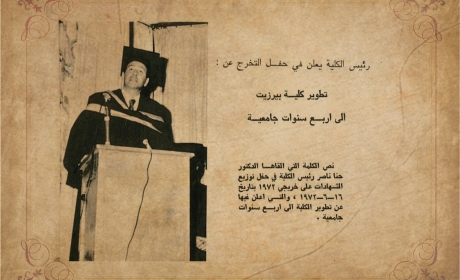 رئيس الكلية يعلن في حفل التخرج عن :
تطوير كلية بيرزيت
الى اربع سنوات جامعية
نص الكلمة التي القاها الدكتور
حنا ناصر رئيس الكلية في حفل توزيع
الشهادات على خريجي ١٩٧٢ بتاريخ
١٦-٦-١٩٧٢ ، والتي اعلن فيها
عن تطوير الكلية الى اربع سنوات
جامعية .